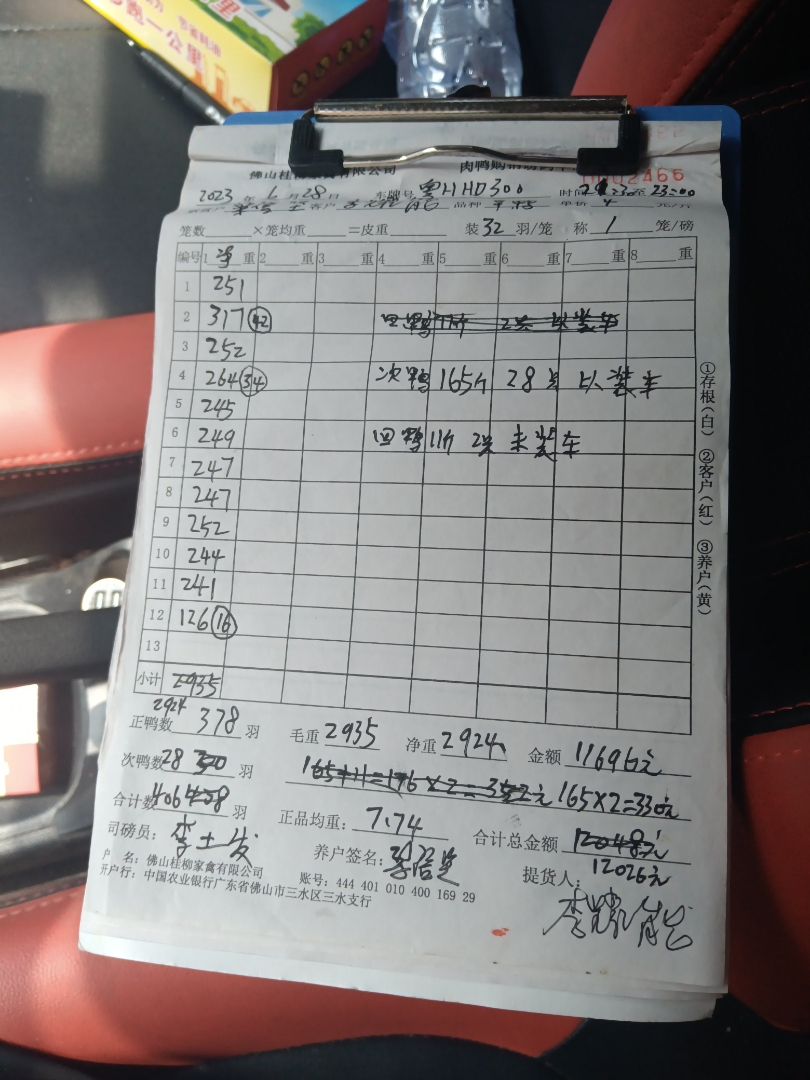 节省耗油
多跑一公里
佛山桂柳家禽有限公司 肉鸭购销
0002466
2023年6月28日 车牌号 粤HHD300 时间 至23:00
客户 品种 单价 4 元/斤
笼数 ×笼均重 =皮重 装32羽/笼 称1笼/磅
编号 1净重 2 重 3 重 4 重 5 重 6 重 7 重 8 重
1 251
2 317 42 回鸭11斤 2只 以装车
3 252
4 264 34 次鸭165斤 28只 以装车
5 245
6 249 回鸭11斤 2只 未装车
7 247
8 247
9 252
10 244
11 241
12 126 16
13
小计 2935
2924
正鸭数 378 羽 毛重 2935 净重 2924 金额 11696元
次鸭数 28 30 羽 165+11=176×2=352元 165×2=330元
合计数 406 408 羽 正品均重: 7.74 合计总金额 12048元
12026元
司磅员: 李士发 养户签名: 提货人:
户 名: 佛山桂柳家禽有限公司 账号: 444 401 010 400 169 29
开户行: 中国农业银行广东省佛山市三水区三水支行
①存根(白) ②客户(红) ③养户(黄)